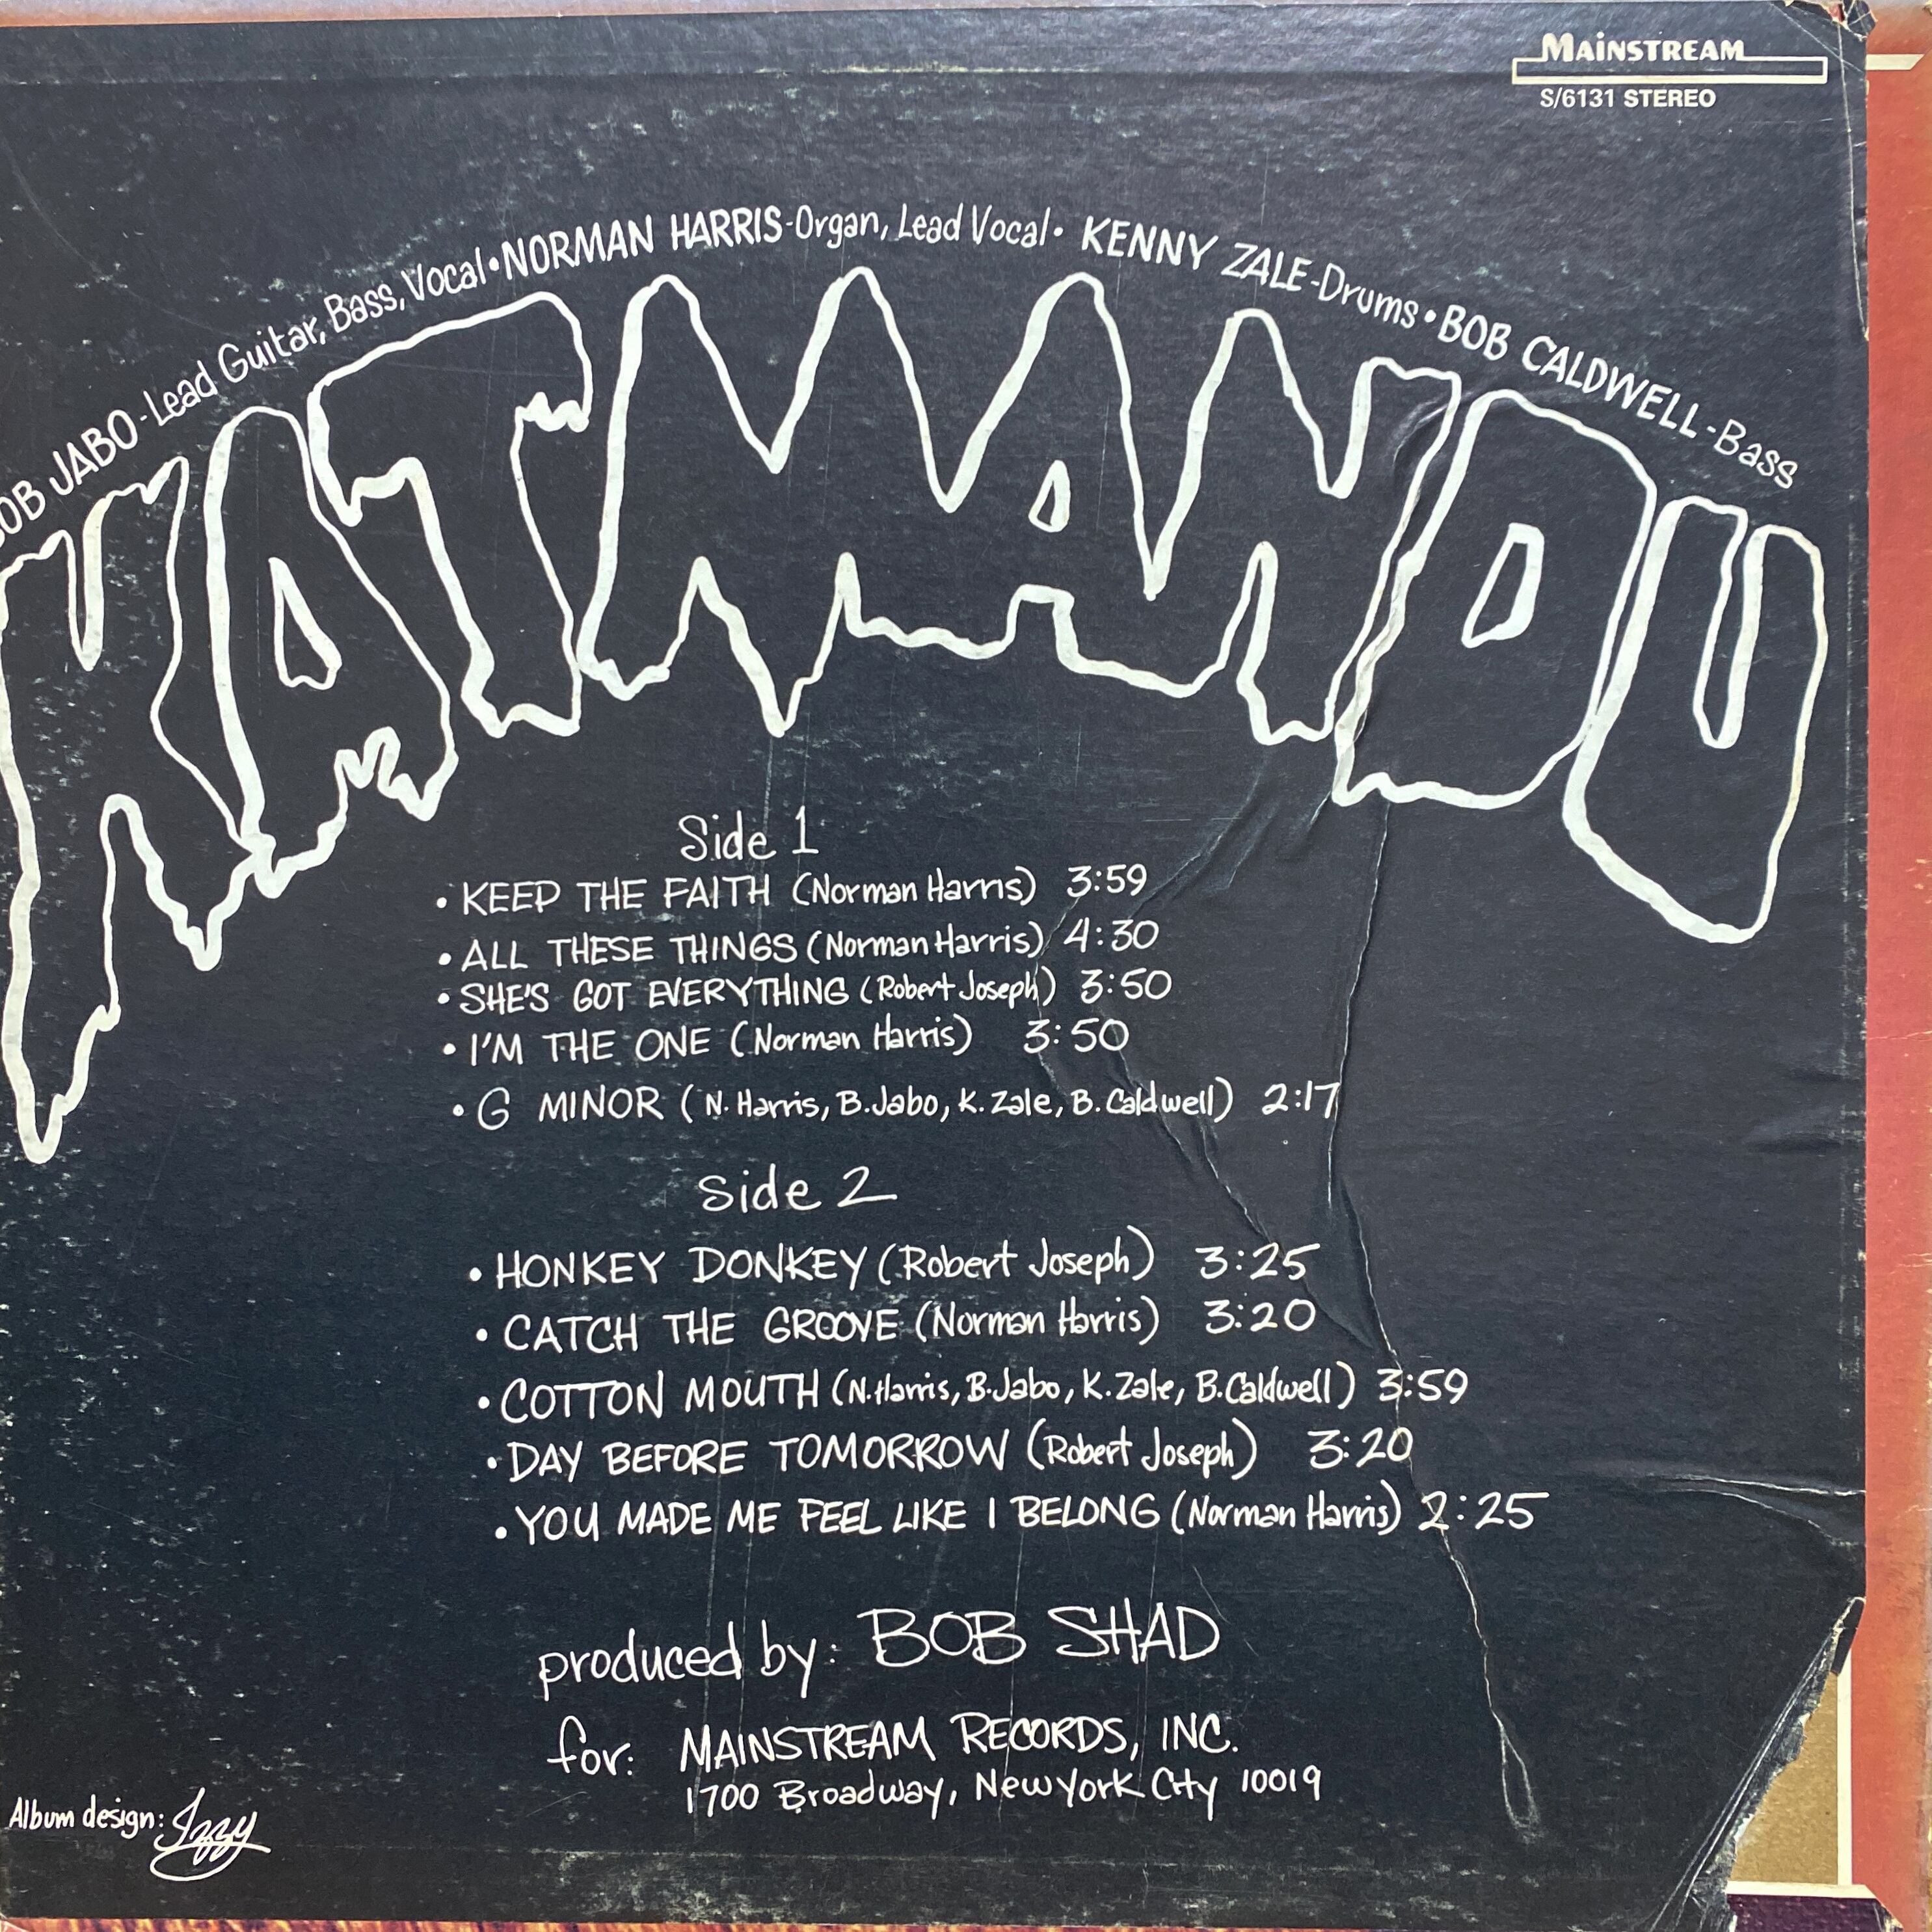 MAINSTREAM
S/6131 STEREO
OB JABO-Lead Guitar, Bass, Vocal • NORMAN HARRIS-Organ, Lead Vocal • KENNY ZALE-Drums • BOB CALDWELL-Bass
KATMANDU
Side 1
• KEEP THE FAITH (Norman Harris) 3:59
• ALL THESE THINGS (Norman Harris) 4:30
• SHE'S GOT EVERYTHING (Robert Joseph) 3:50
• I'M THE ONE (Norman Harris) 3:50
• G MINOR (N. Harris, B. Jabo, K. Zale, B. Caldwell) 2:17
Side 2
• HONKEY DONKEY (Robert Joseph) 3:25
• CATCH THE GROOVE (Norman Harris) 3:20
• COTTON MOUTH (N. Harris, B. Jabo, K. Zale, B. Caldwell) 3:59
• DAY BEFORE TOMORROW (Robert Joseph) 3:20
• YOU MADE ME FEEL LIKE I BELONG (Norman Harris) 2:25
produced by: BOB SHAD
for: MAINSTREAM RECORDS, INC.
1700 Broadway, New York City 10019
Album design: Izzy